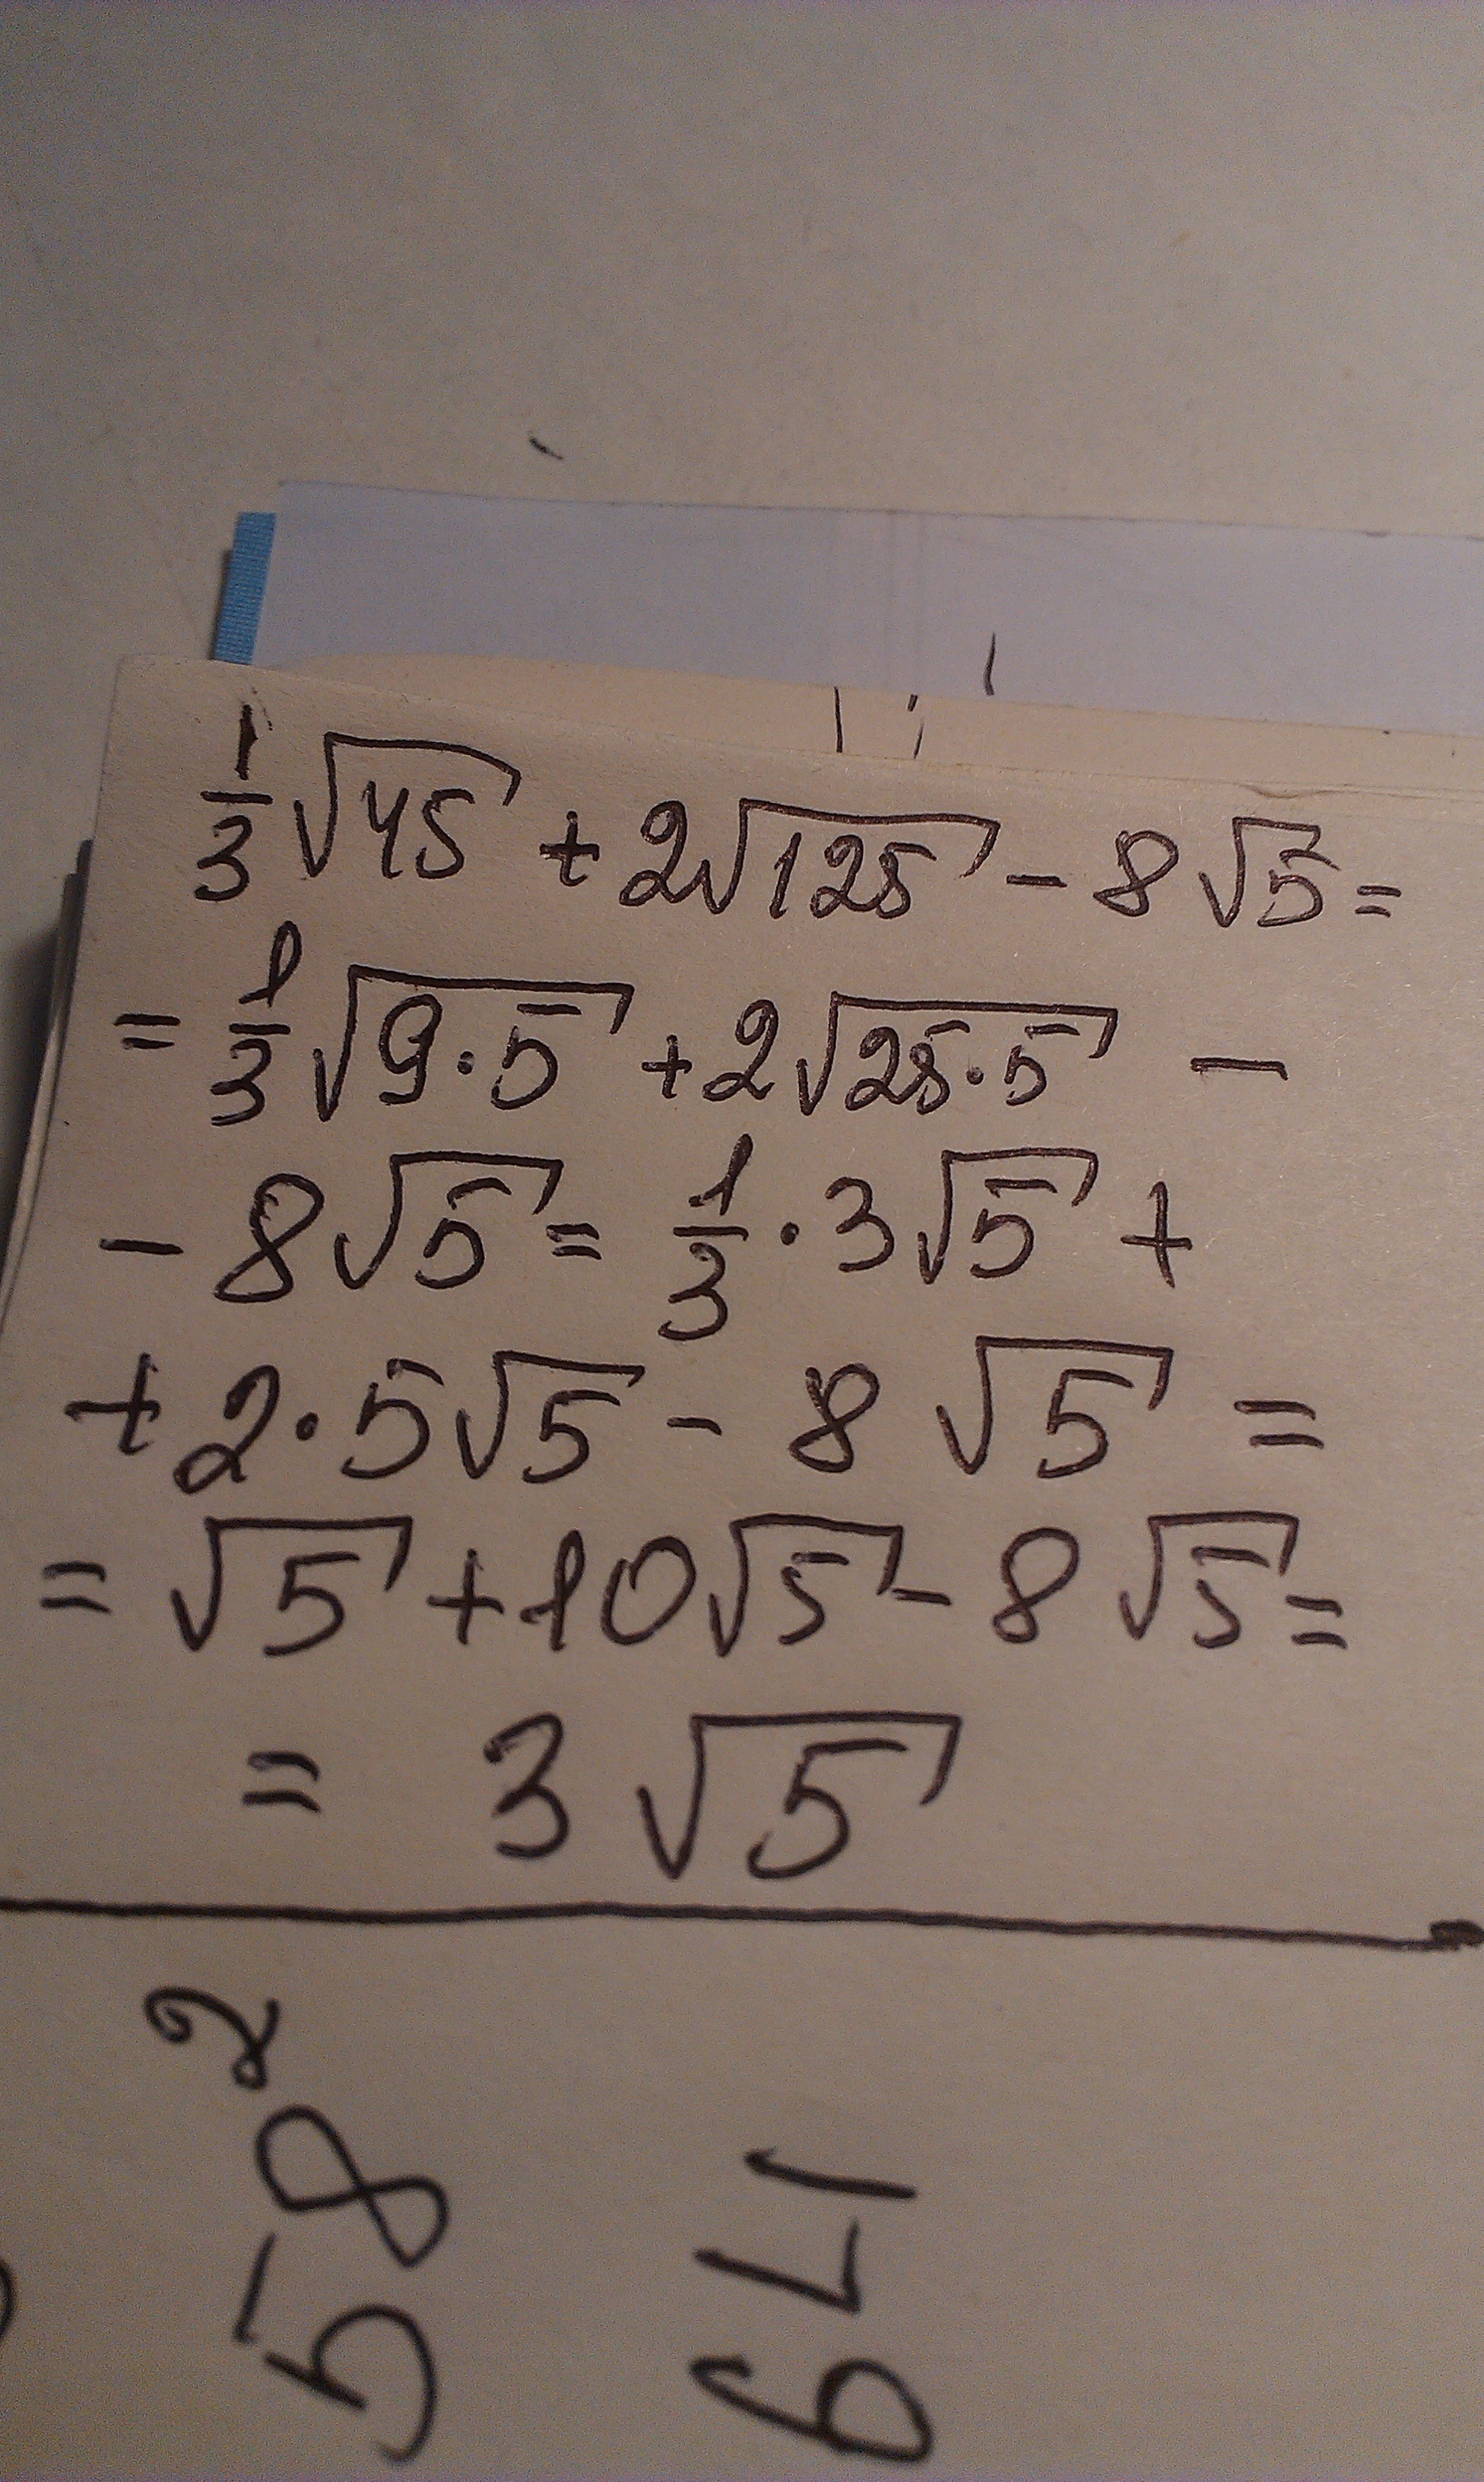 1/3√45 + 2√125 - 8√5 =
= 1/3√9·5 + 2√25·5 -
- 8√5 = 1/3 · 3√5 +
+ 2·5√5 - 8√5 =
= √5 + 10√5 - 8√5 =
= 3√5
58²
641